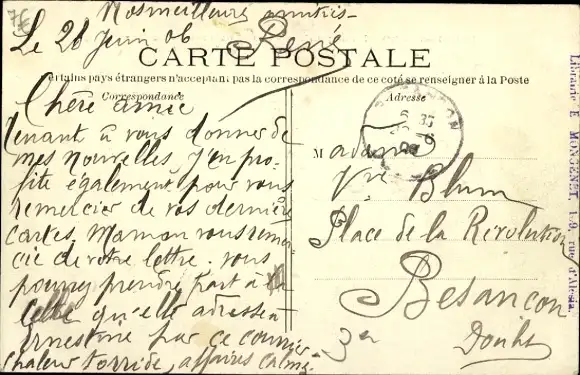 Nos meilleures amitiés
René
Le 26 Juin 06
CARTE POSTALE
Certains pays étrangers n'acceptant pas la correspondance de ce coté se renseigner à la Poste
Correspondance
Adresse
Chère amie
Tenant à vous donner de
mes nouvelles, j'en pro-
fite également pour vous
remercier de vos dernières
cartes. Maman vous remer
cie de votre lettre. Vous
pourrez prendre part à
celle qu'elle adresse à
Ernestine par ce courrier
Chaleur torride, affaires calmes
Madame
Vve Blum
Place de la Révolution
Besançon
Doubs
Librairie E. MONGENET, 129, rue d'Alésia.